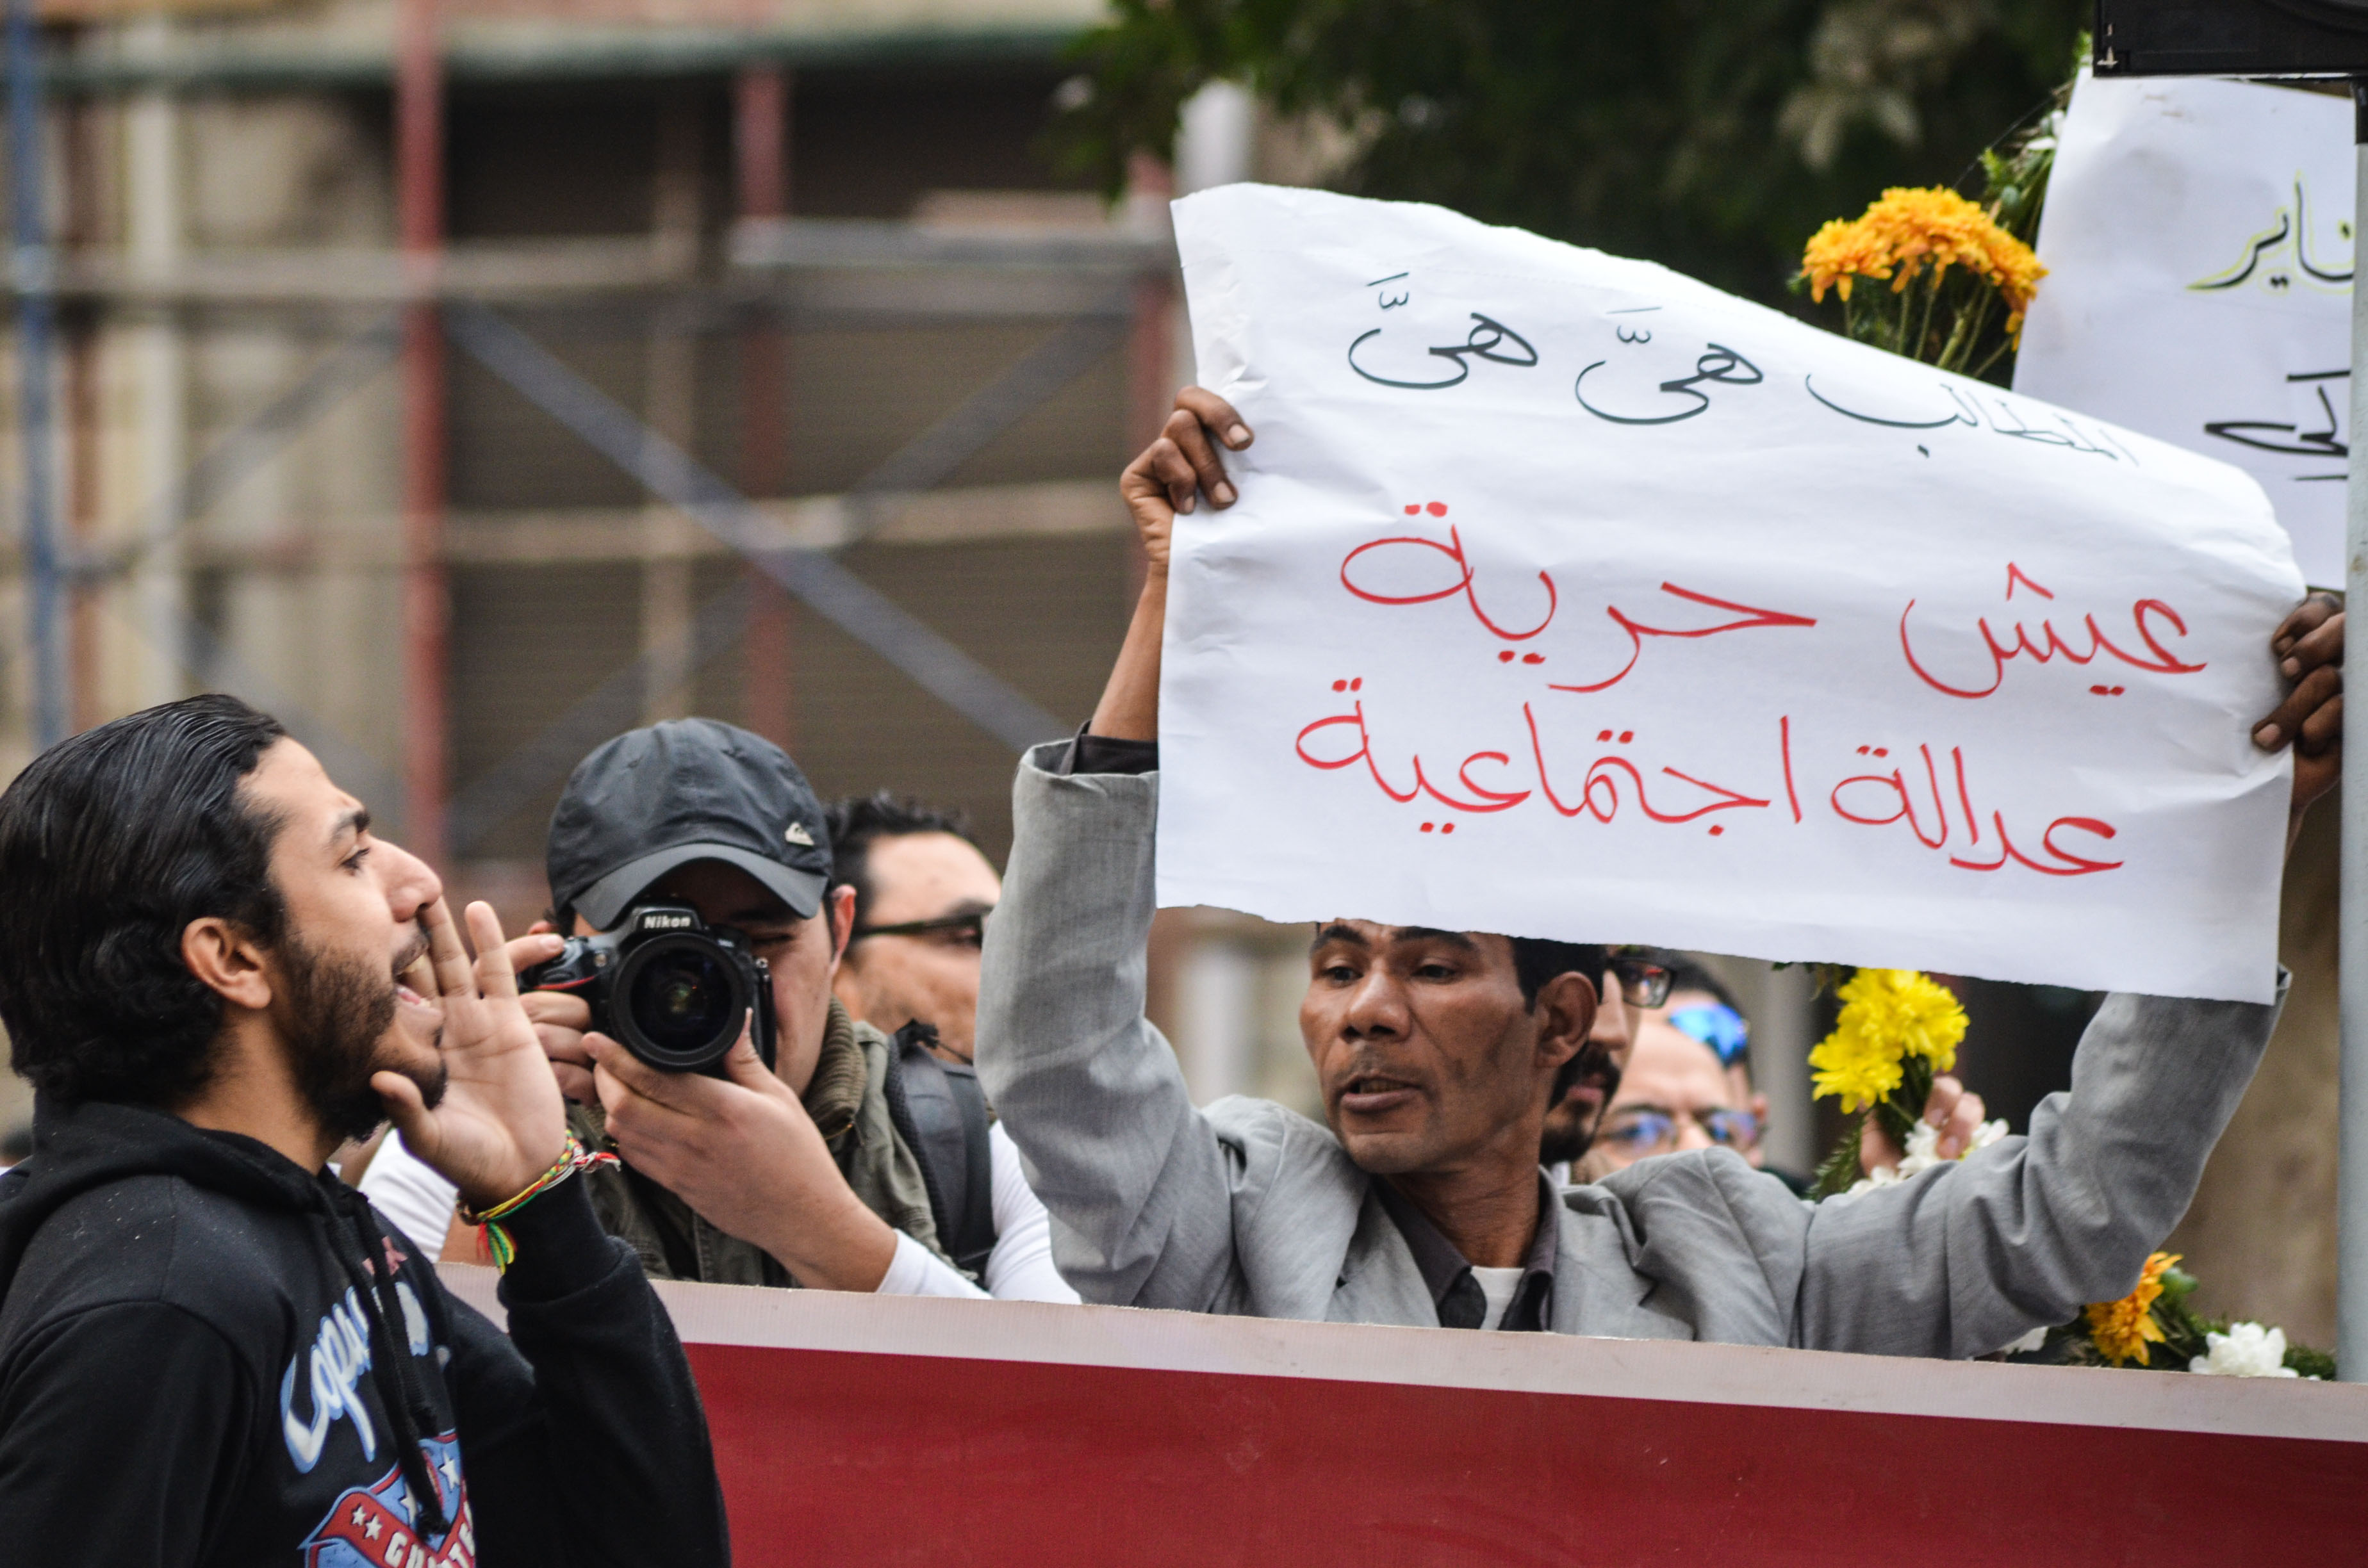 المطالب هىَّ هىَّ
عيش حرية
عدالة اجتماعية
يناير
Nikon